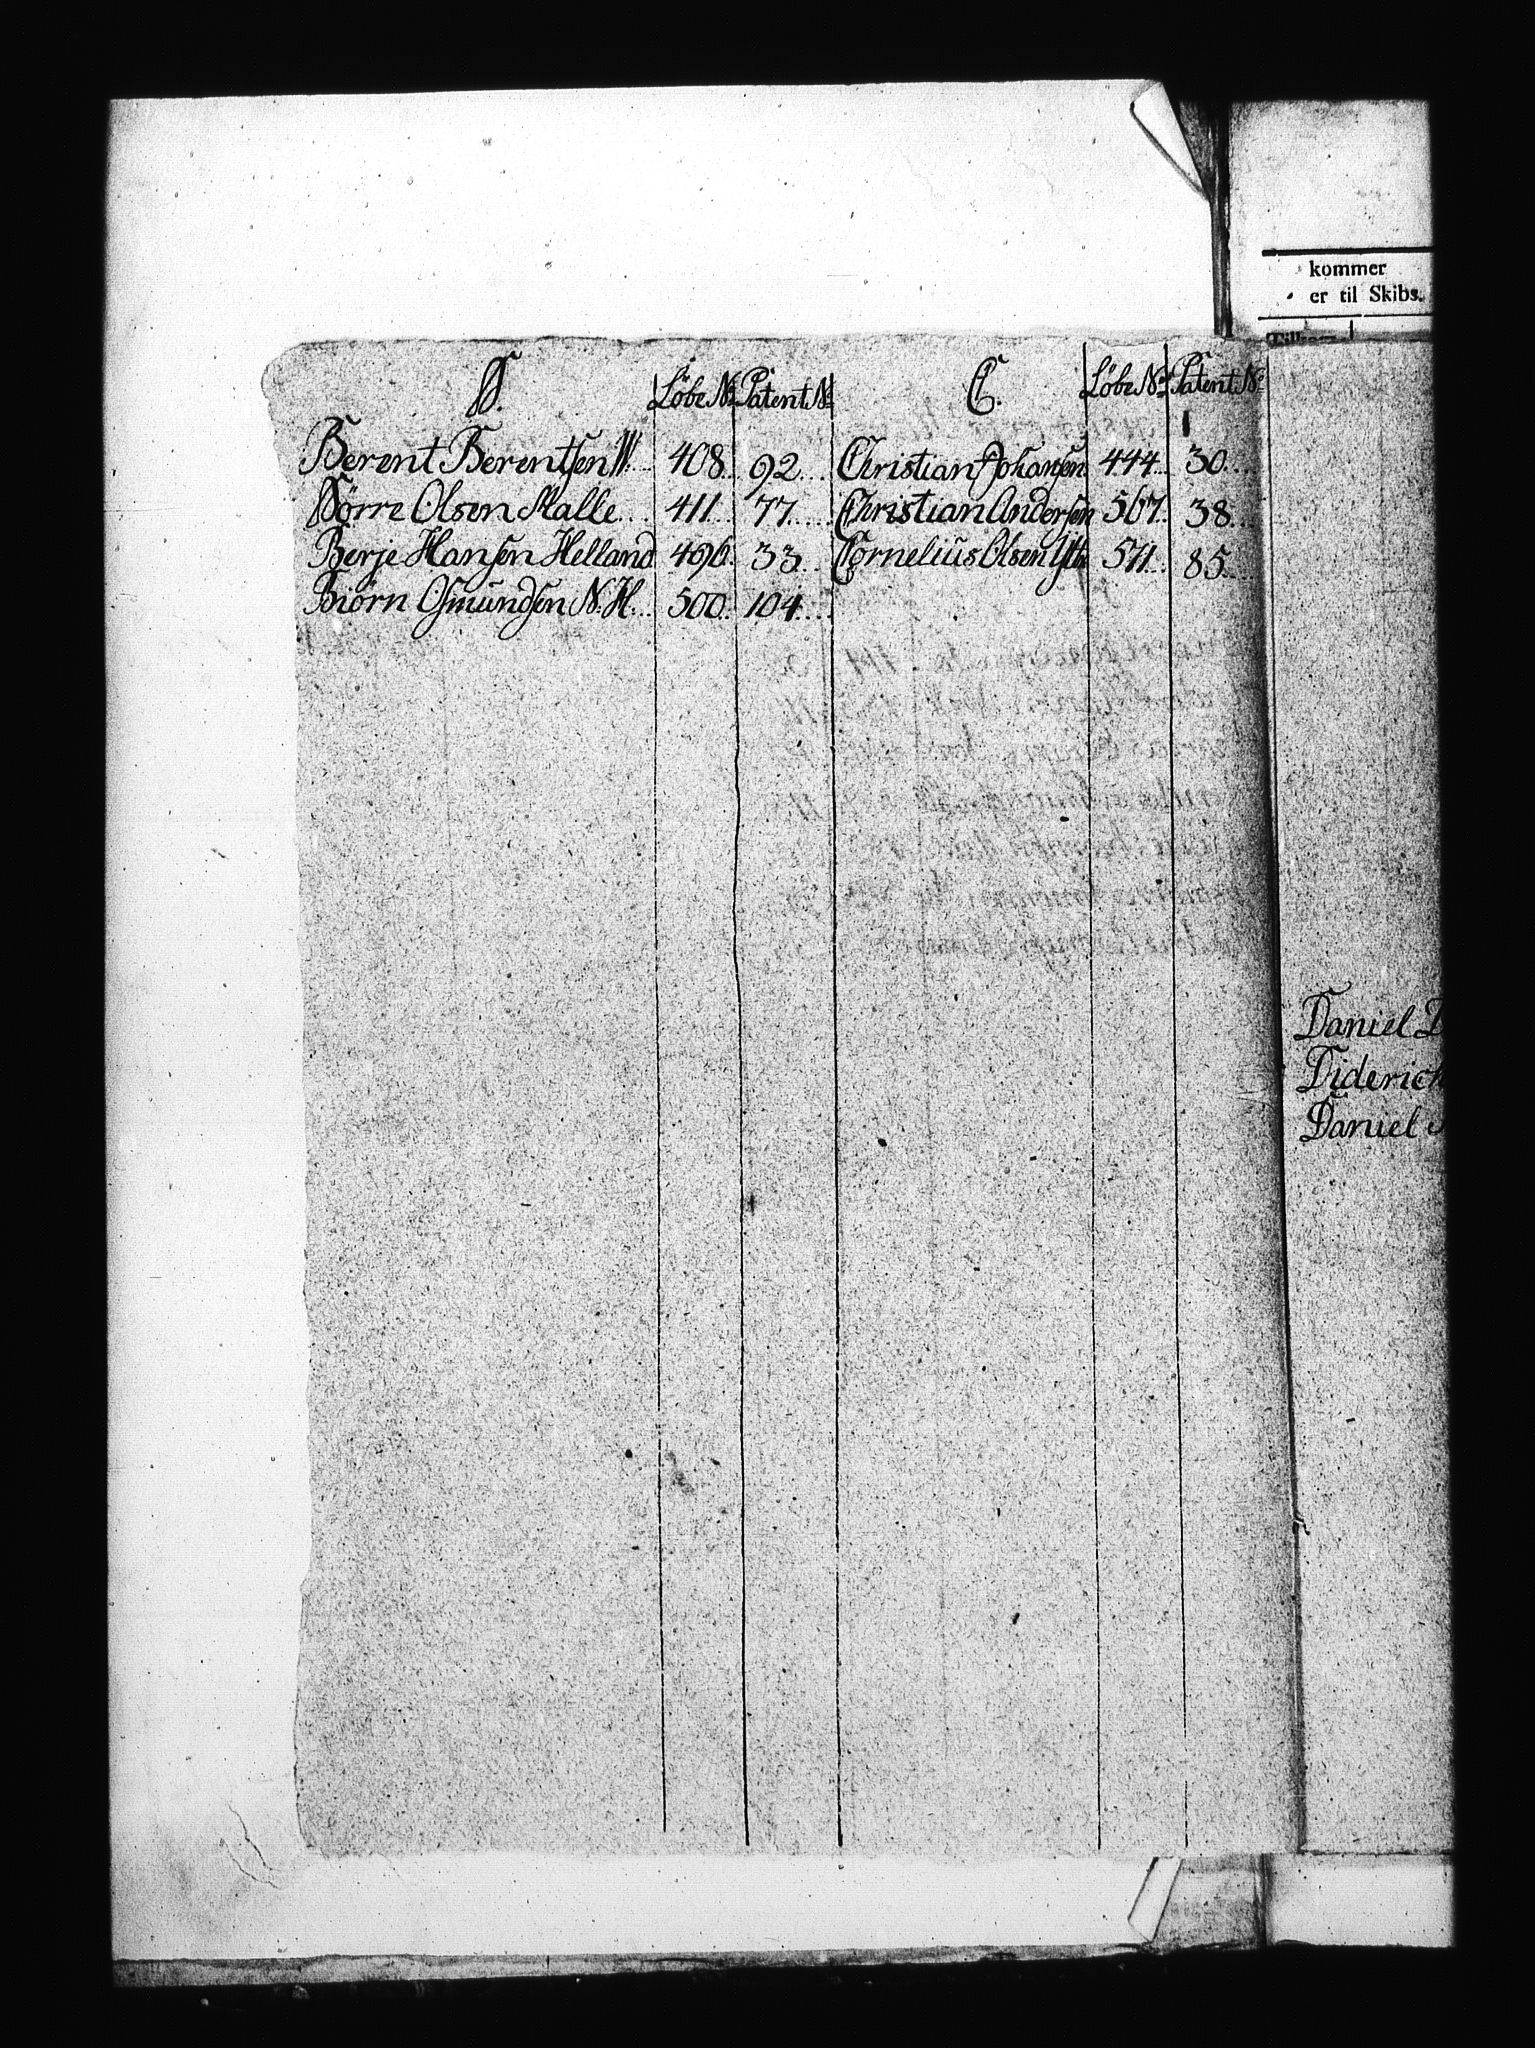 B. Löbe No Patent No C. Löbe No Patent No
Berent Berentsen W. 408. 92. Christian Johansen 444. 30.
Börre Olsen Malle. 411. 77. Christian Andersen 567. 38.
Berje Hansen Helland 496. 33. Cornelius Olsen 571. 85.
Biörn Osmundsen N. H. 500. 104.
kommer
er til Skibs.
Daniel
Diderich
Daniel